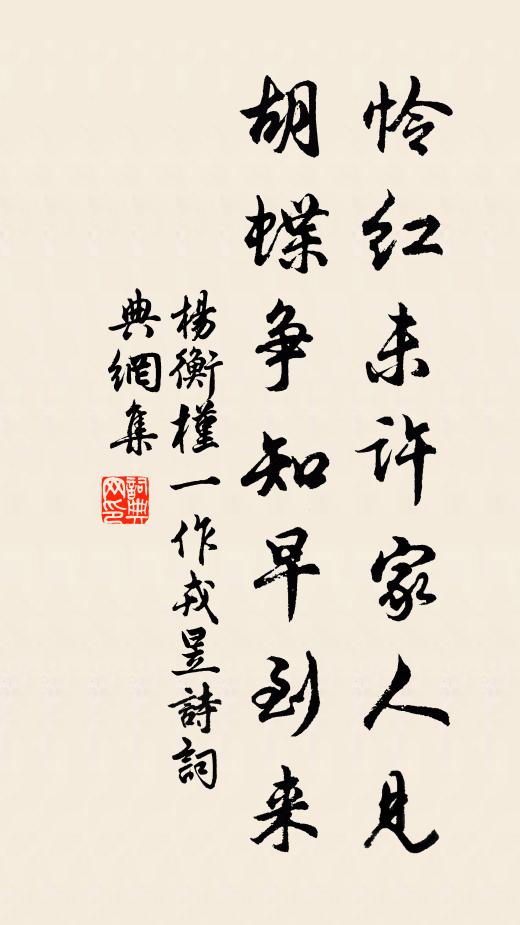 怜红未许家人见
胡蝶争知早到来
楊衡槿一作戎昱詩詞
典網集
詞典网印